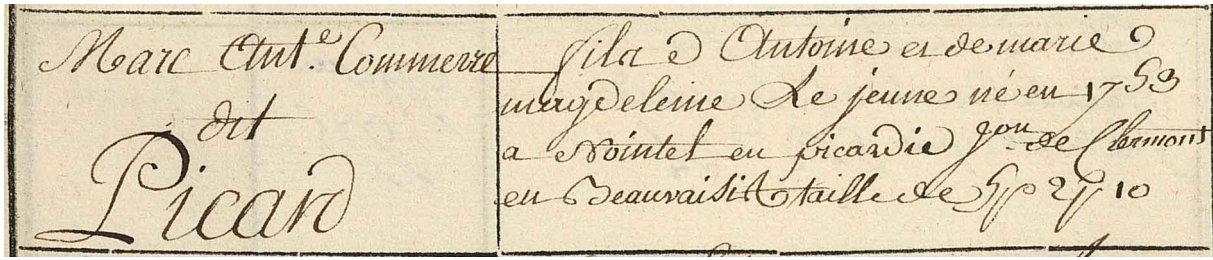 Marc Ant.e Commerre
dit
Picard
fils d'Antoine et de marie
magdeleine Le jeune né en 1753
a Nointel en picardie Jon de Clermont
en Beauvaisis taille de 5p 2p 10